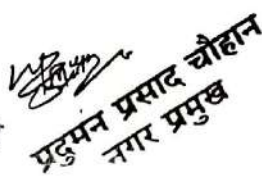 प्रदुमन प्रसाद चौहान
नगर प्रमुख